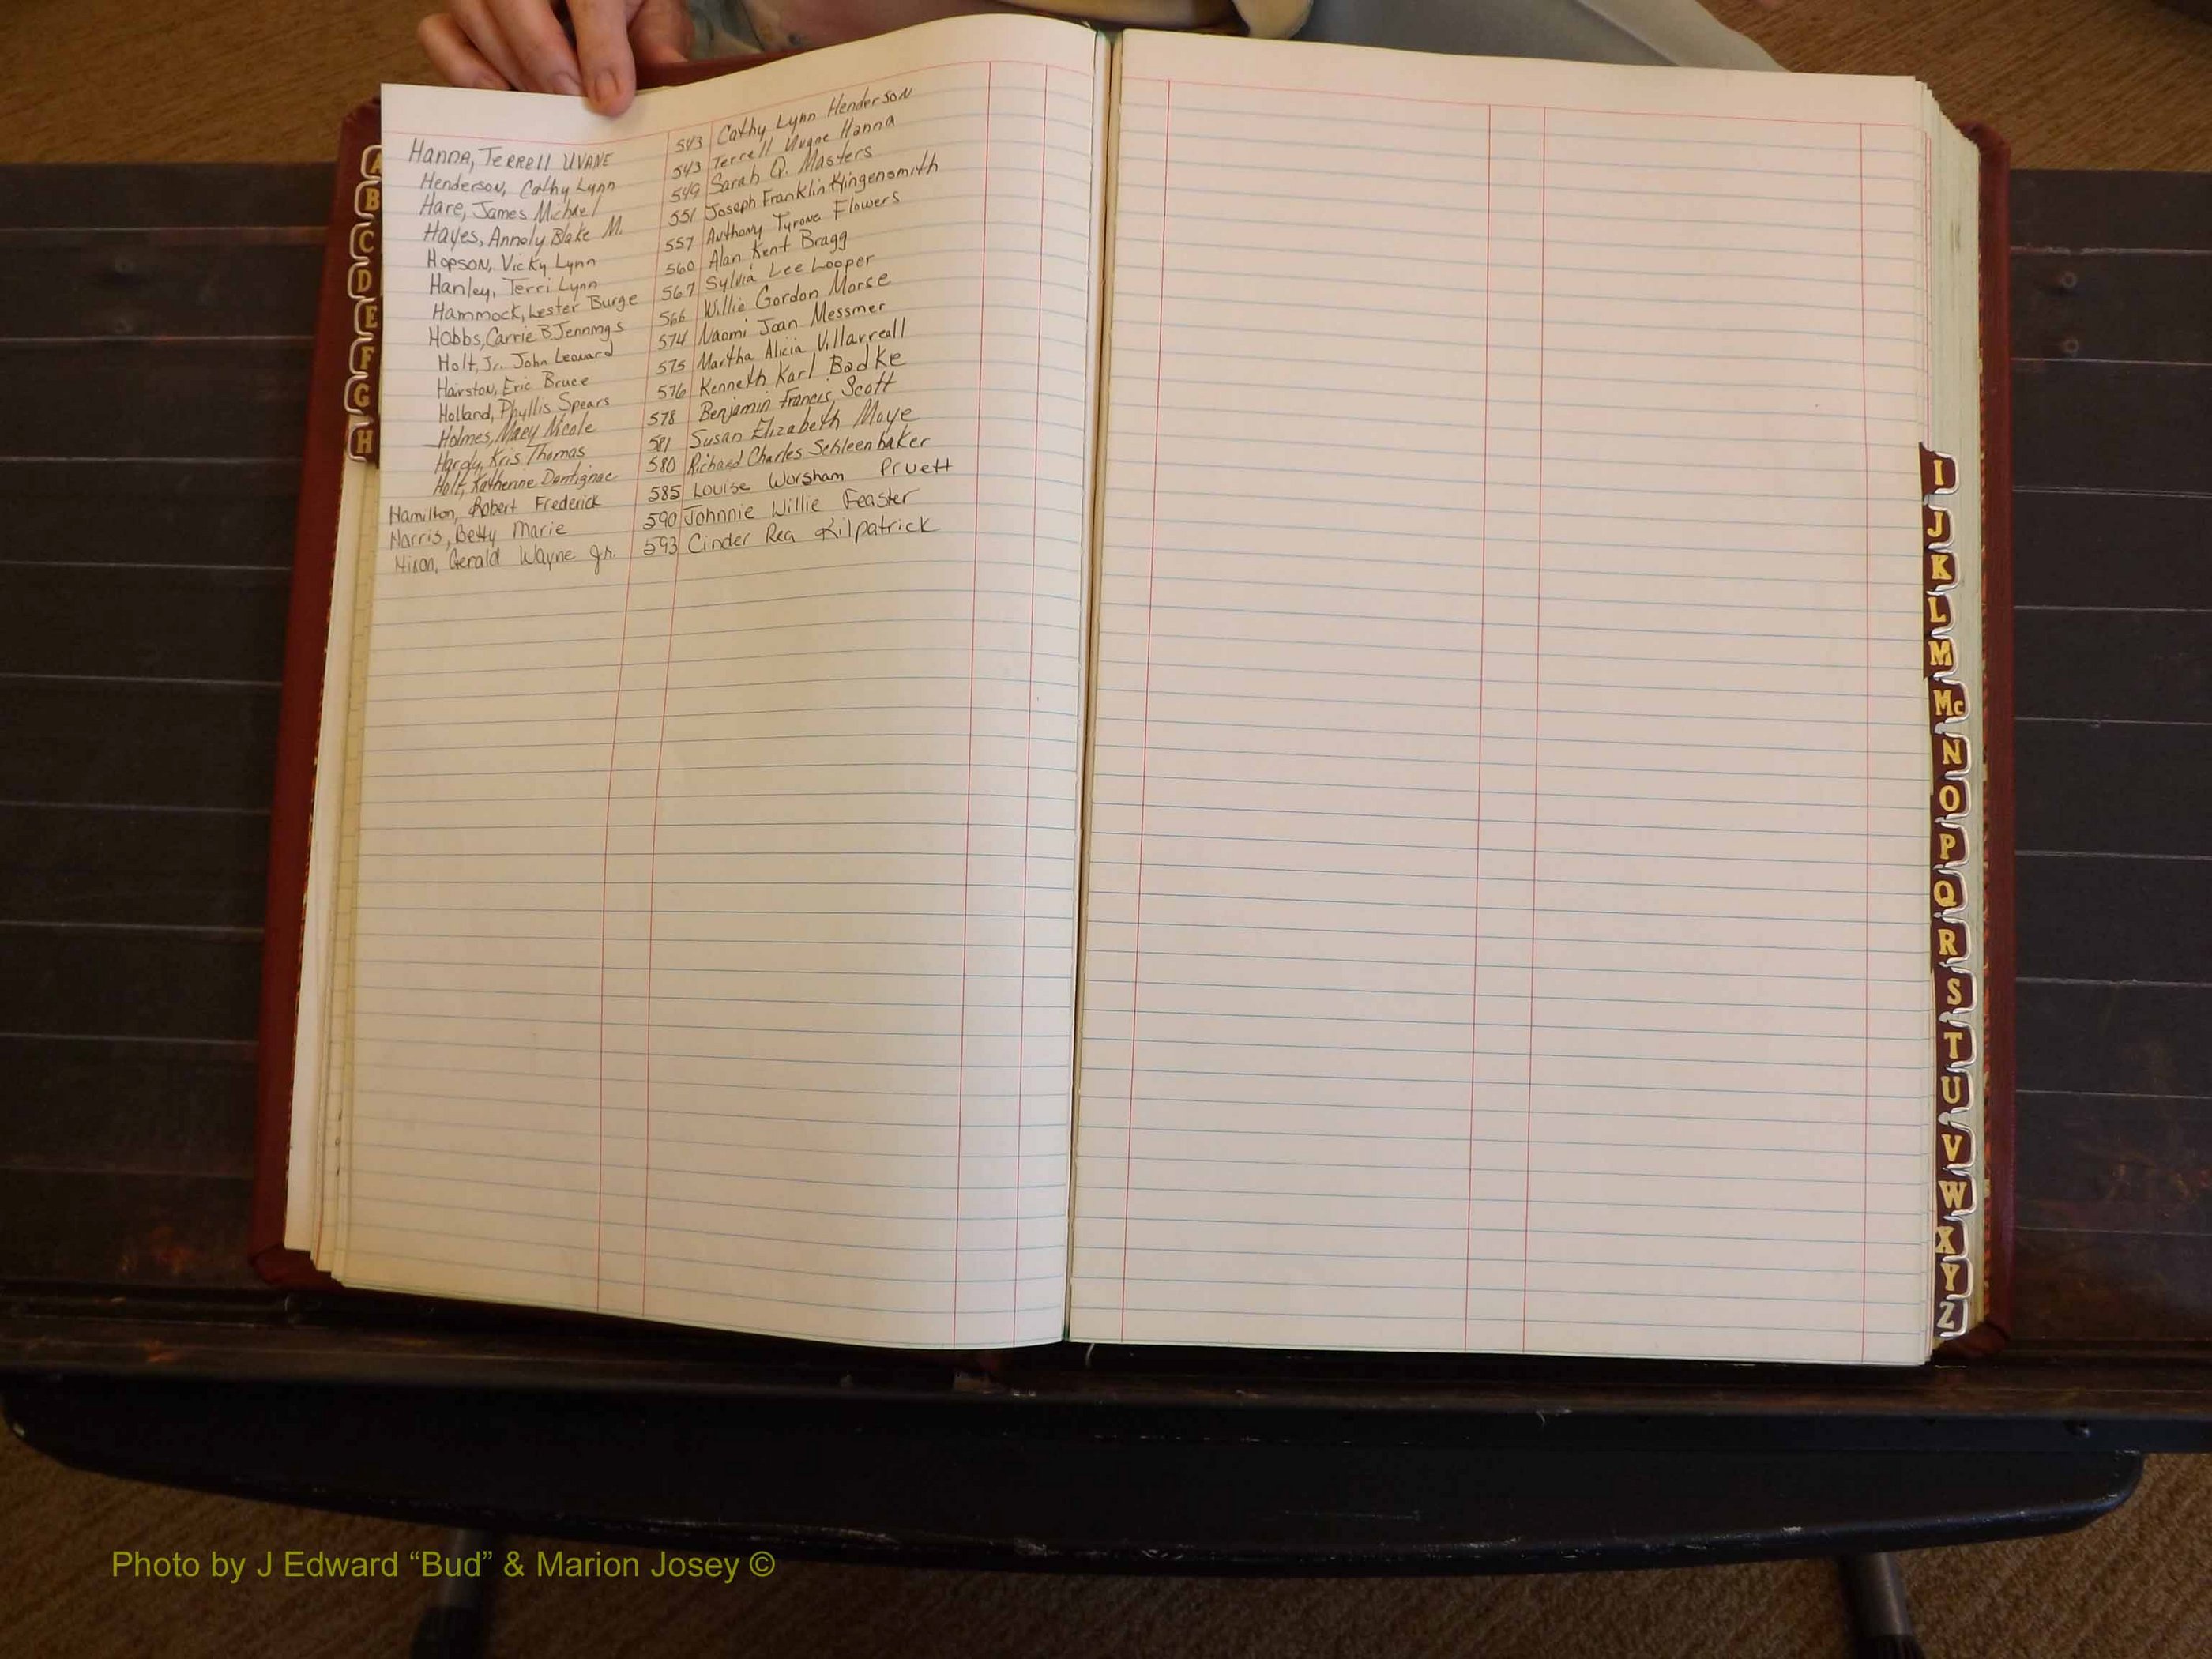 Hanna, Terrell Uvane 543 Cathy Lynn Henderson
Henderson, Cathy Lynn 543 Terrell Uvane Hanna
Hare, James Michael 549 Sarah Q. Masters
Hayes, Annely Blake M. 551 Joseph Franklin Klingensmith
Hopson, Vicky Lynn 557 Anthony Tyrone Flowers
Hanley, Terri Lynn 560 Alan Kent Bragg
Hammock, Lester Burge 567 Sylvia Lee Looper
Hobbs, Carrie B Jennings 566 Willie Gordon Morse
Holt, Jr. John Leonard 574 Naomi Joan Messmer
Hairston, Eric Bruce 575 Martha Alicia Villarreall
Holland, Phyllis Spears 576 Kenneth Karl Badke
Holmes, Maey Nicole 578 Benjamin Francis Scott
Hardy, Kris Thomas 581 Susan Elizabeth Moye
Holt, Katherine Dantignac 580 Richard Charles Schleenbaker
Hamilton, Robert Frederick 585 Louise Worsham Pruett
Harris, Betty Marie 590 Johnnie Willie Feaster
Hixon, Gerald Wayne Jr. 593 Cinder Rea Kilpatrick
A
B
C
D
E
F
G
H
I
J
K
L
M
Mc
N
O
P
Q
R
S
T
U
V
W
X
Y
Z
Photo by J Edward “Bud” & Marion Josey ©